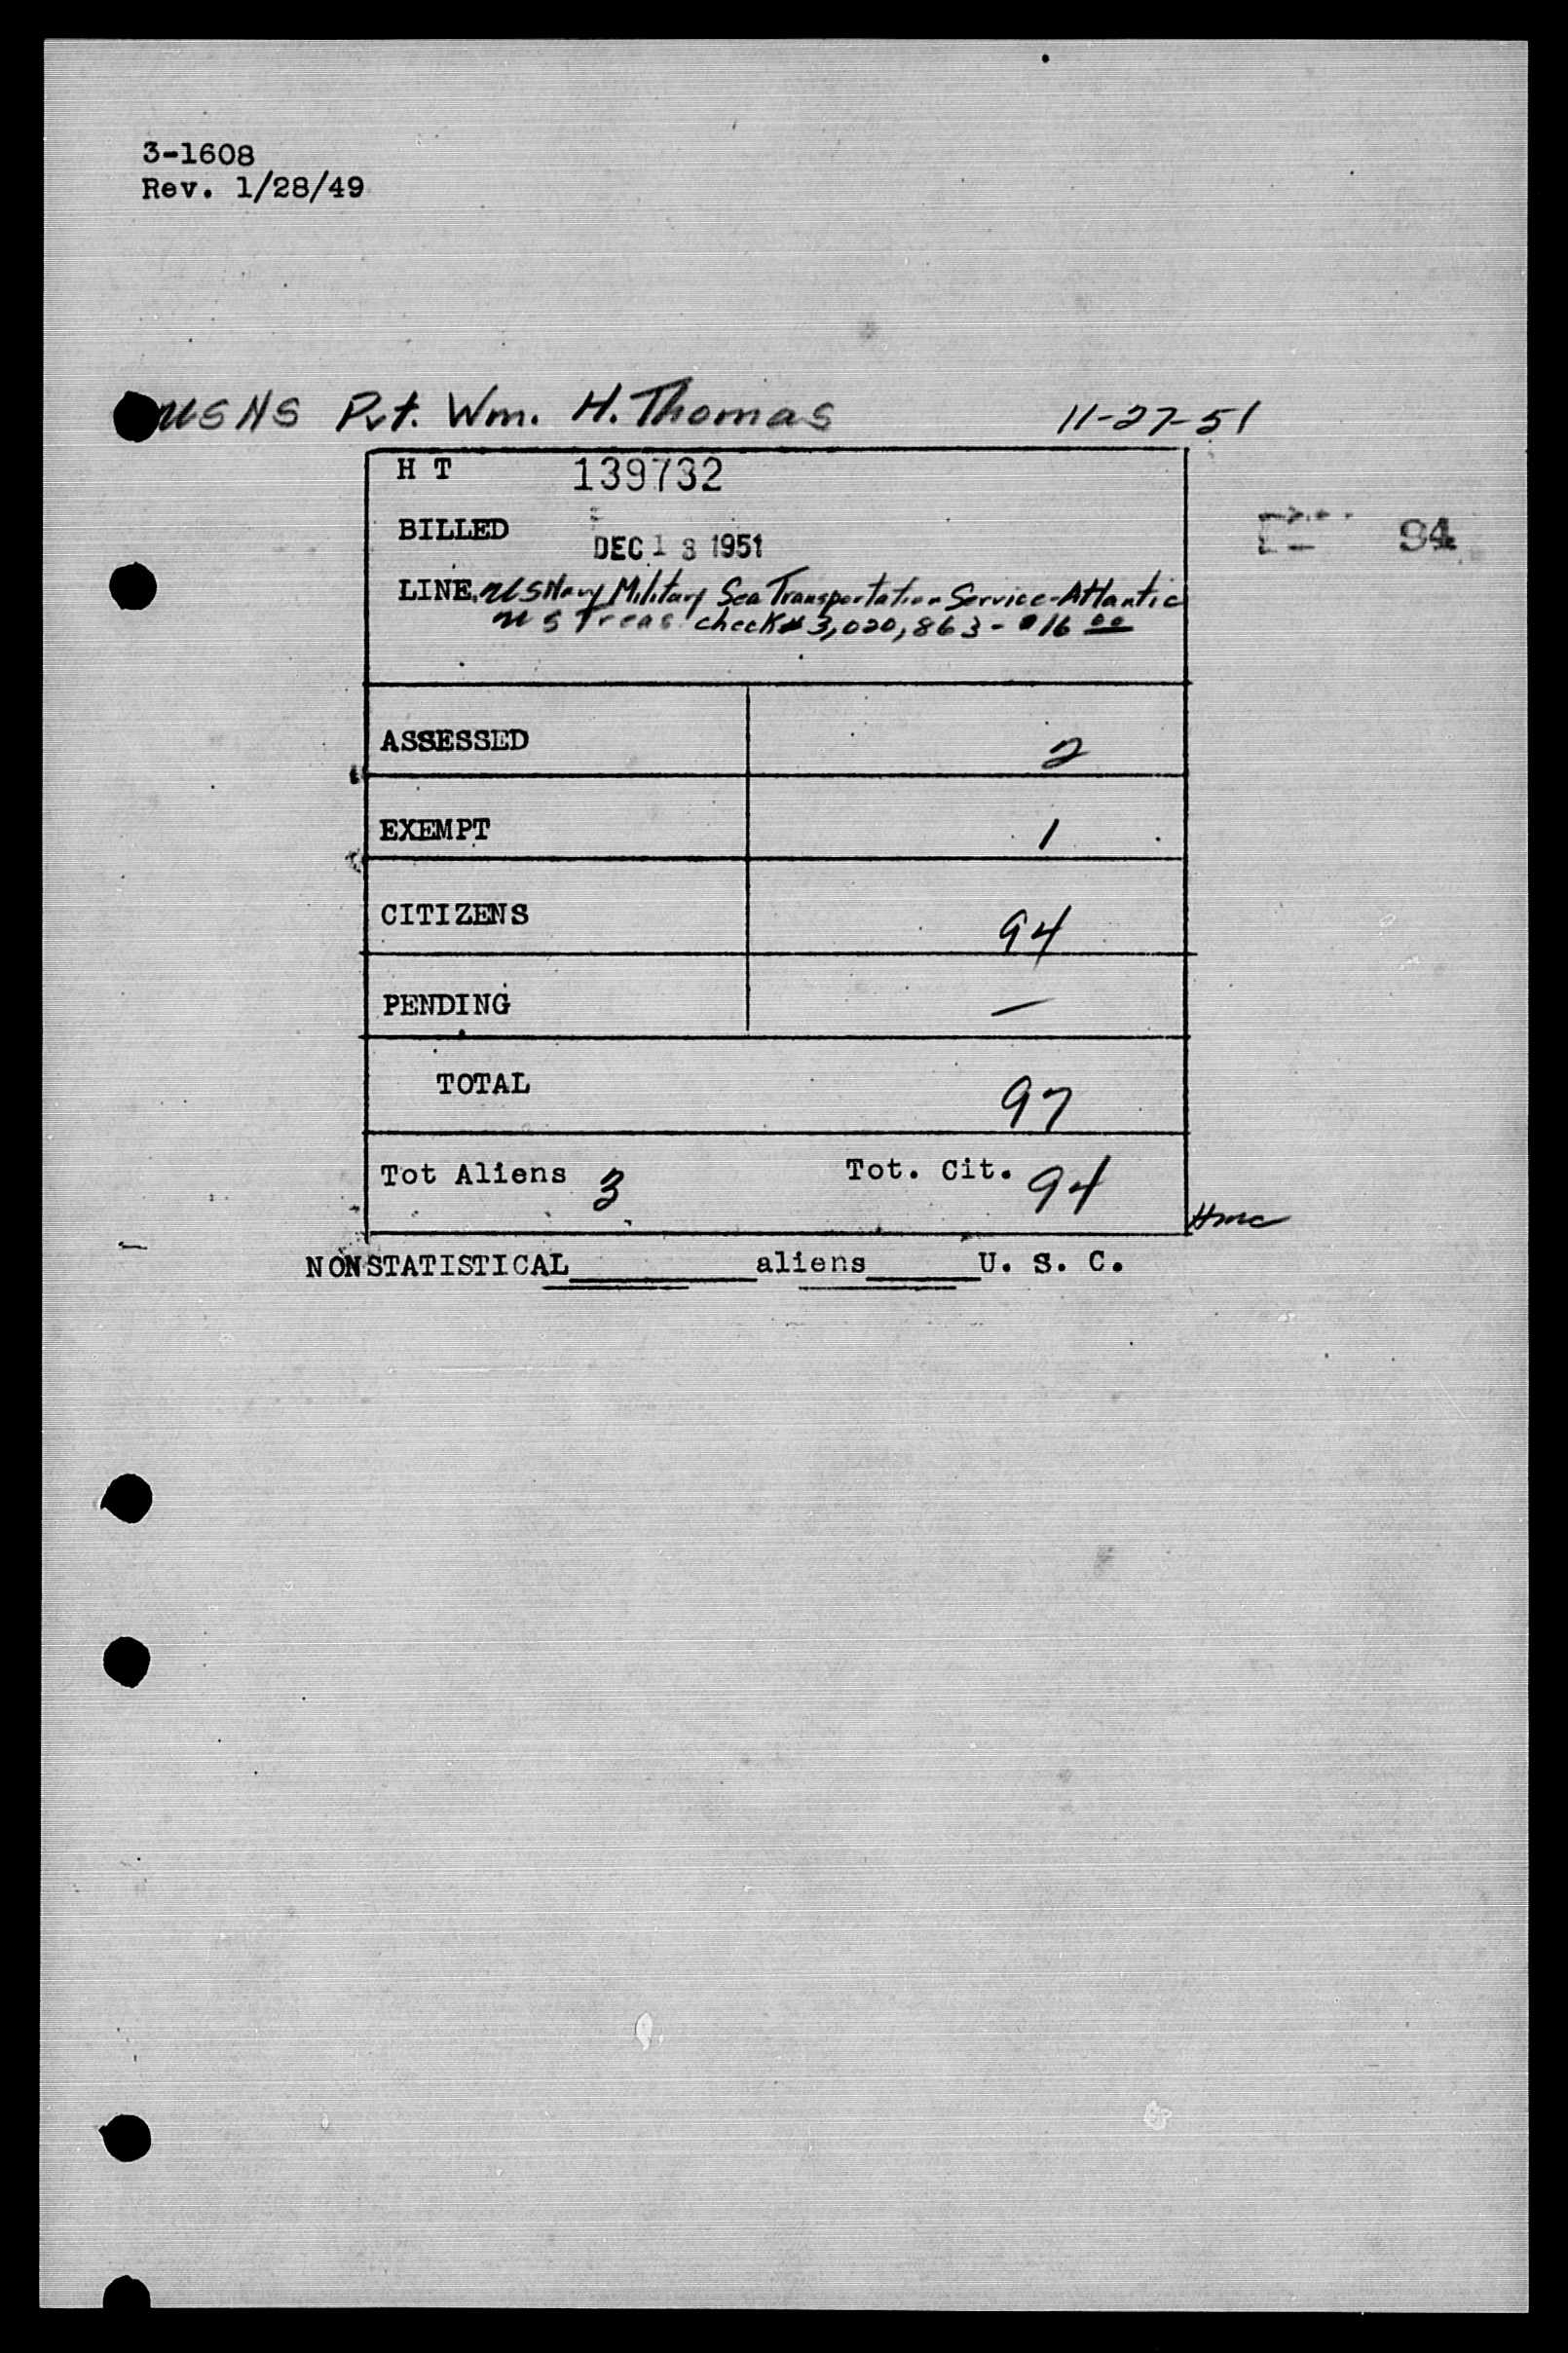 3-1608
Rev. 1/28/49
USNS Pvt. Wm. H. Thomas 11-27-51
H T 139732
BILLED DEC 13 1951
94
LINE US Navy Military Sea Transportation Service-Atlantic
US Treas check# 3,020,863 - $16 00
ASSESSED 2
EXEMPT 1
CITIZENS 94
PENDING —
TOTAL 97
Tot Aliens 3 Tot. Cit. 94
Hmc
NONSTATISTICAL aliens U. S. C.